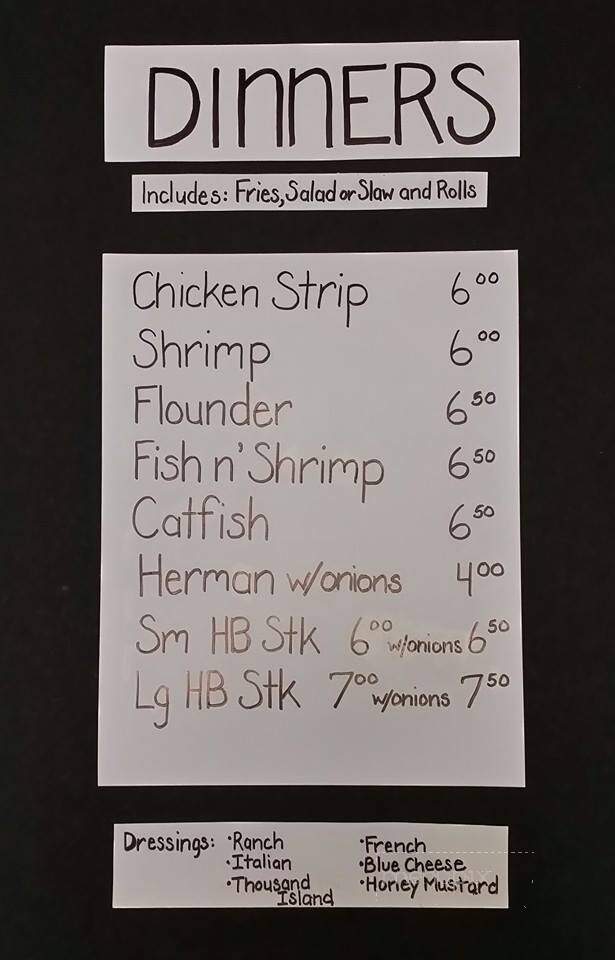 DINNERS
Includes: Fries, Salad or Slaw and Rolls
Chicken Strip 6⁰⁰
Shrimp 6⁰⁰
Flounder 6⁵⁰
Fish n' Shrimp 6⁵⁰
Catfish 6⁵⁰
Herman w/onions 4⁰⁰
Sm HB Stk 6⁰⁰ w/onions 6⁵⁰
Lg HB Stk 7⁰⁰ w/onions 7⁵⁰
Dressings: •Ranch •French
•Italian •Blue Cheese
•Thousand •Honey Mustard
Island